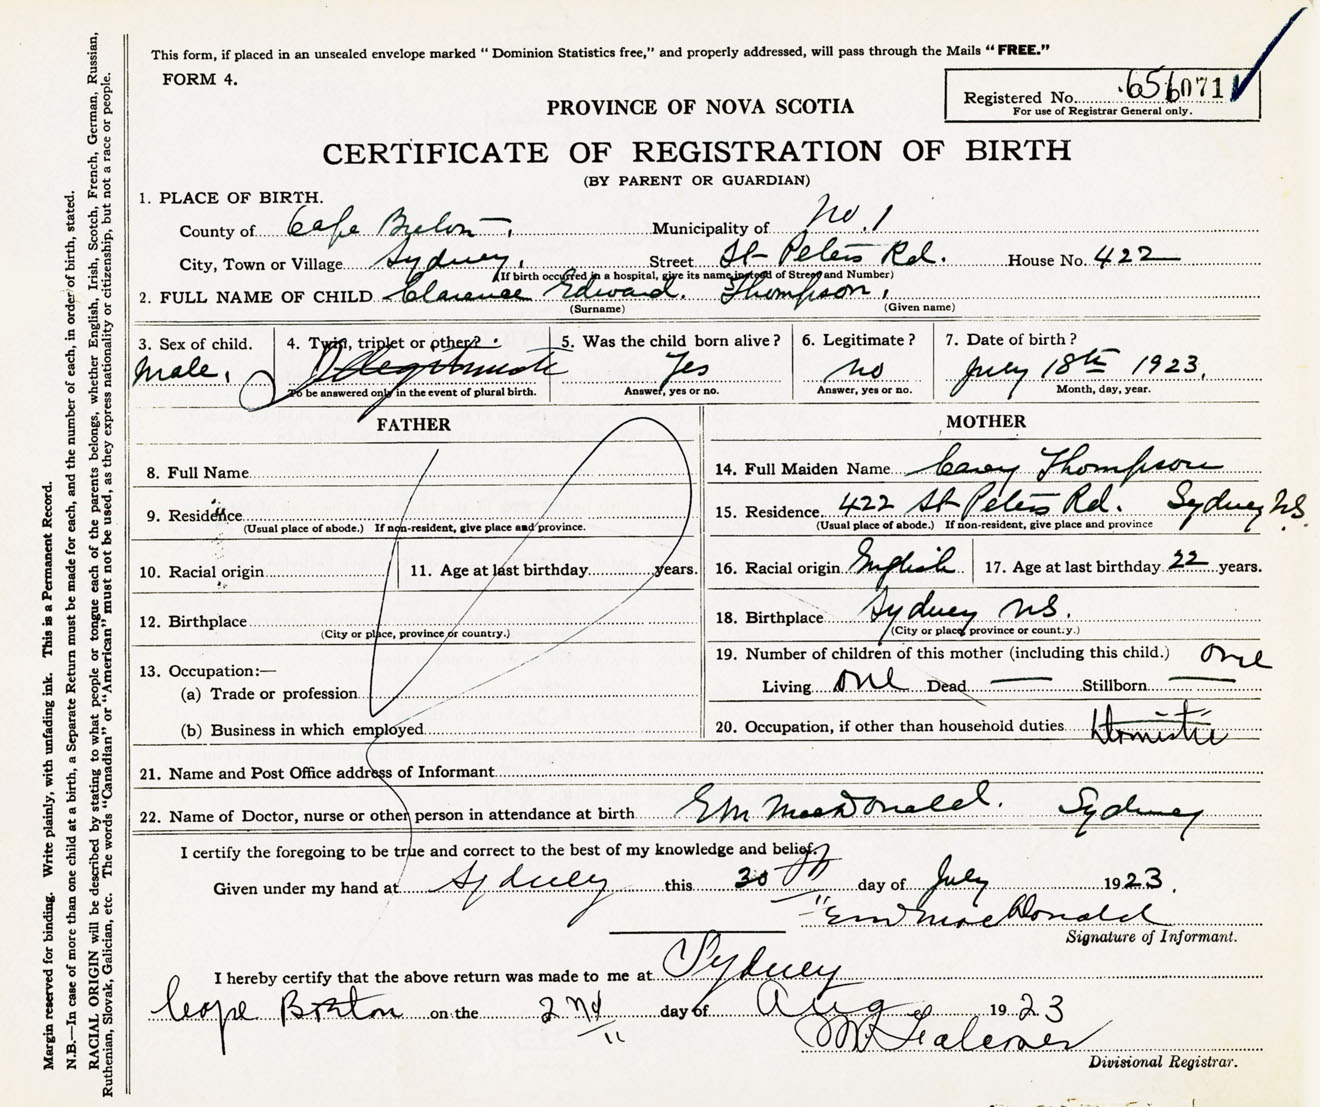 This form, if placed in an unsealed envelope marked “ Dominion Statistics free,” and properly addressed, will pass through the Mails “ FREE.”
FORM 4.
Registered No. 656071
For use of Registrar General only.
PROVINCE OF NOVA SCOTIA
CERTIFICATE OF REGISTRATION OF BIRTH
(BY PARENT OR GUARDIAN)
1. PLACE OF BIRTH.
County of Cape Breton Municipality of No. 1
City, Town or Village Sydney, Street St Peters Rd. House No. 422
(If birth occurred in a hospital, give its name instead of Street and Number)
2. FULL NAME OF CHILD Clarence Edward. Thompson,
(Surname) (Given name)
3. Sex of child. 4. Twin, triplet or other? 5. Was the child born alive? 6. Legitimate? 7. Date of birth?
Male, Illegitimate Yes no July 18th 1923.
To be answered only in the event of plural birth. Answer, yes or no. Answer, yes or no. Month, day, year.
FATHER
8. Full Name
9. Residence
(Usual place of abode.) If non-resident, give place and province.
10. Racial origin 11. Age at last birthday years.
12. Birthplace
(City or place, province or country.)
13. Occupation:—
(a) Trade or profession
(b) Business in which employed
MOTHER
14. Full Maiden Name Thompson
15. Residence. 422 St Peters Rd. Sydney NS.
(Usual place of abode.) If non-resident, give place and province
16. Racial origin English 17. Age at last birthday 22 years.
18. Birthplace Sydney NS.
(City or place, province or country.)
19. Number of children of this mother (including this child.) one
Living one Dead — Stillborn —
20. Occupation, if other than household duties Domestic
21. Name and Post Office address of Informant
22. Name of Doctor, nurse or other person in attendance at birth E M MacDonald. Sydney
I certify the foregoing to be true and correct to the best of my knowledge and belief.
Given under my hand at Sydney this 30th day of July 1923.
"E M MacDonald
Signature of Informant.
I hereby certify that the above return was made to me at Sydney
Cape Breton on the 2nd day of Aug 1923
Divisional Registrar.
Margin reserved for binding. Write plainly, with unfading ink. This is a Permanent Record.
N.B.—In case of more than one child at a birth, a Separate Return must be made for each, and the number of each, in order of birth, stated.
RACIAL ORIGIN will be described by stating to what people or tongue each of the parents belongs, whether English, Irish, Scotch, French, German, Russian,
Ruthenian, Slovak, Galician, etc. The words “Canadian” or “American” must not be used, as they express nationality or citizenship, but not a race or people.